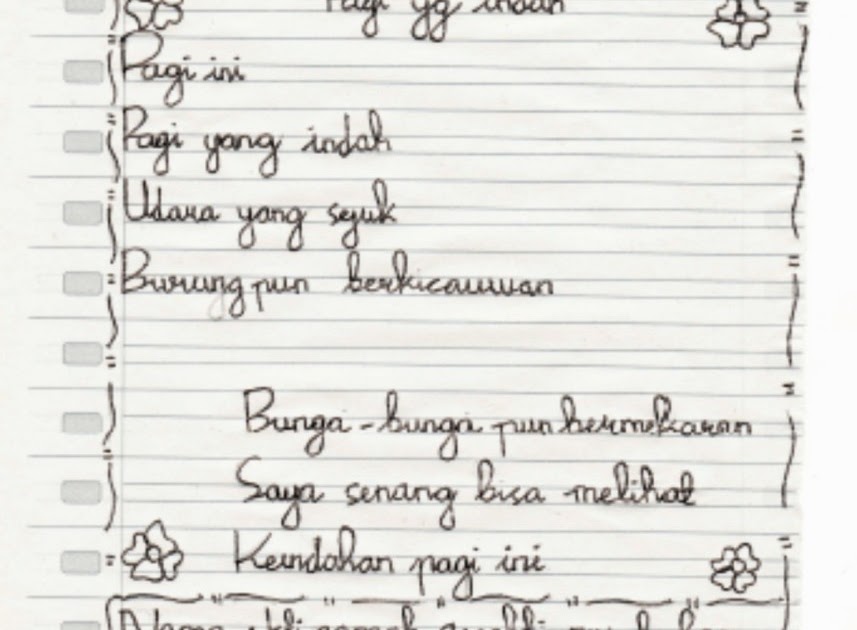 Pagi yg indah
Pagi ini
Pagi yang indah
Udara yang sejuk
Burung pun berkicauuan
Bunga-bunga pun bermekaran
Saya senang bisa melihat
Keindahan pagi ini